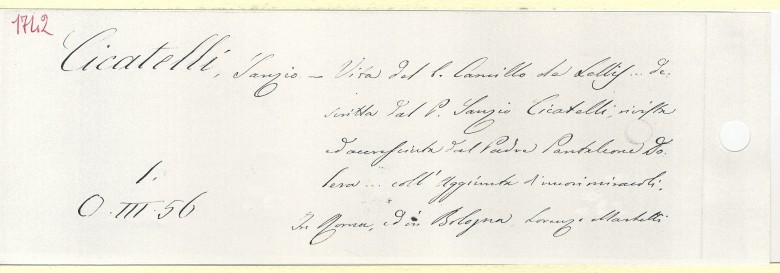 1742
Cicatelli, Sanzio – Vita del P. Camillo de Lellis... de-
scritta dal P. Sanzio Cicatelli, rivista
ed accresciuta dal Padre Pantaleone Do-
lera... coll' Aggiunta di nuovi miracoli.
In Roma, ed in Bologna Lorenzo Martelli
1.
O. III. 56